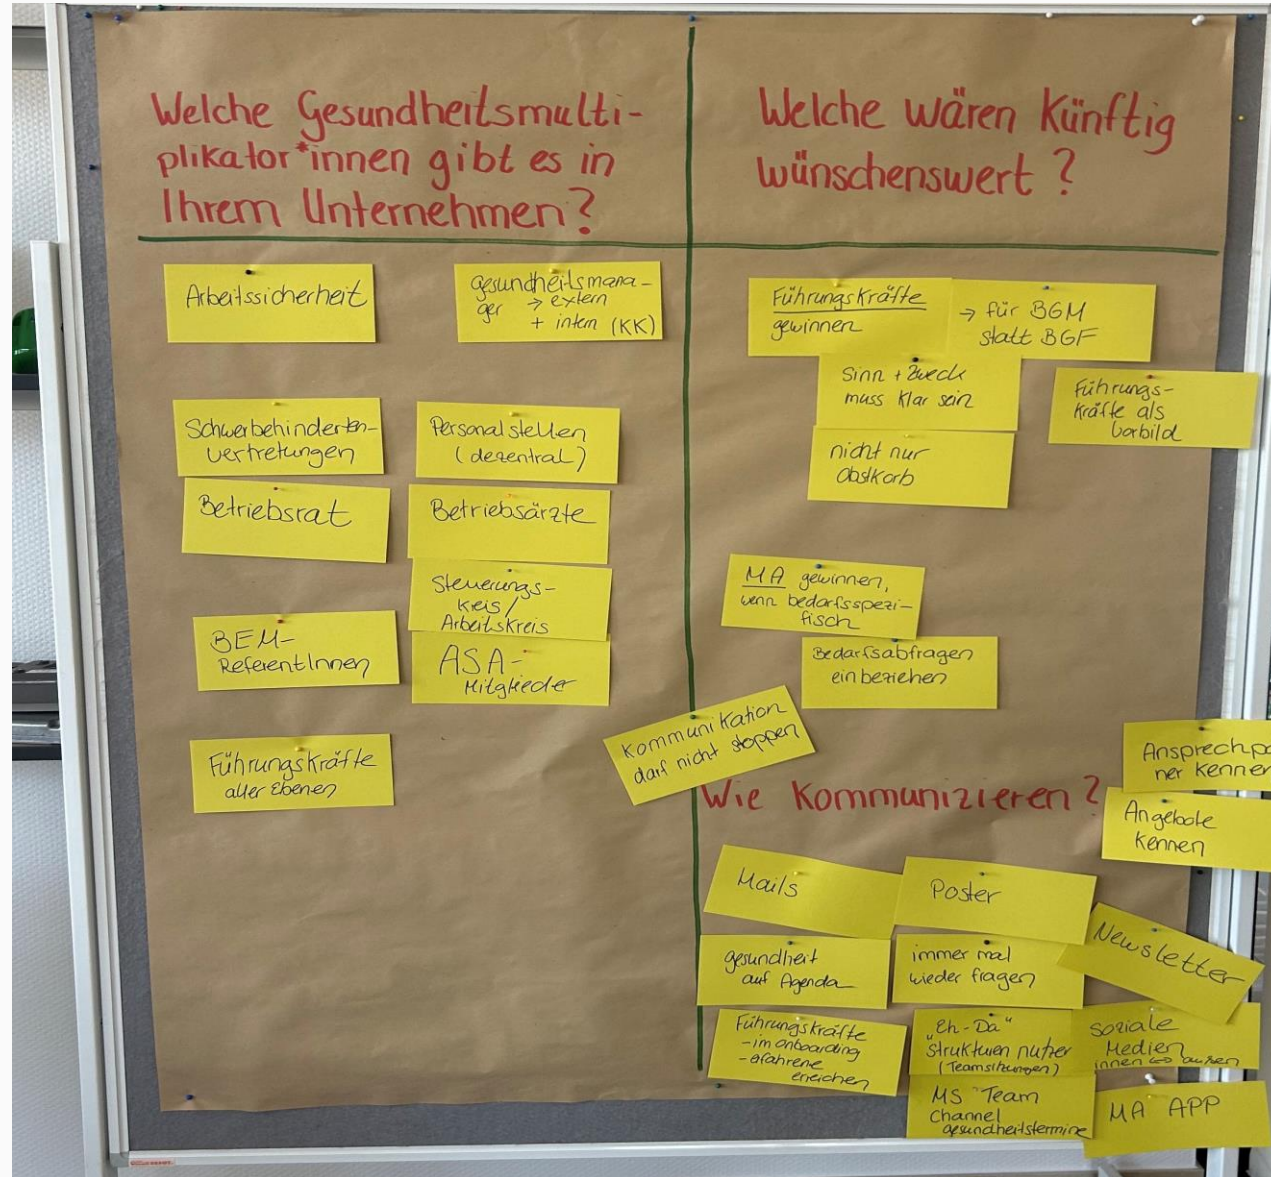 Welche Gesundheitsmulti-
plikator*innen gibt es in
Ihrem Unternehmen?
Arbeitssicherheit
gesundheitsmana-
ger → extern
+ intern (KK)
Schwerbehinderten-
vertretungen
Personalstellen
(dezentral)
Betriebsrat
Betriebsärzte
Steuerungs-
kreis/
Arbeitskreis
BEM-
ReferentInnen
ASA-
Mitglieder
Führungskräfte
aller Ebenen
Welche wären künftig
wünschenswert?
Führungskräfte
gewinnen
→ für BGM
statt BGF
Sinn + Zweck
muss klar sein
Führungs-
kräfte als
Vorbild
nicht nur
Obstkorb
MA gewinnen,
wenn bedarfsspezi-
fisch
Bedarfsabfragen
einbeziehen
Kommunikation
darf nicht stoppen
Wie kommunizieren?
Ansprechpa
ner kennen
Angebote
kennen
Mails
Poster
Newsletter
gesundheit
auf Agenda
immer mal
wieder fragen
Führungskräfte
- im onboarding
- erfahrene
erreichen
"Eh-Da"
Strukturen nutzen
(Teamsitzungen)
soziale
Medien
innen ⇔ außen
MS Team
Channel
gesundheitstermine
MA APP